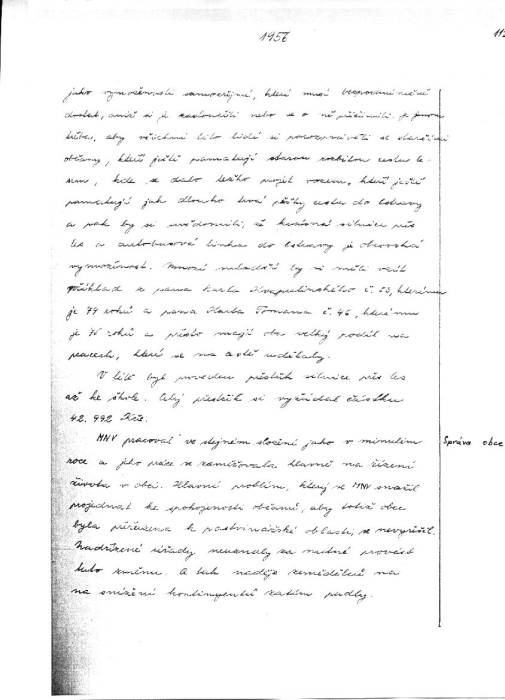 1956
112
jako vymoženosti samozřejmé, které musí bezpodmínečně
dostat, aniž si je zasloužili nebo se o ně přičinili. Je jenom
třeba, aby všichni tito lidé si porozprávěli se staršími
občany, kteří ještě pamatují starou rozbitou cestu le-
sem, kde se dalo těžko projít vozem, kteří ještě
pamatují jak dlouho trvá pěšky cesta do Ostravy
a pak by si uvědomili, že krásná silnice přes
les a autobusová linka do Ostravy je obrovská
vymoženost. Mnozí mladší by si měli vzít
příklad z pana Karla Kvapulinského č. 53, kterému
je 79 roků a pana Karla Tomana č. 46, kterému
je 75 roků a přesto mají oba velký podíl na
pracech, které se na cestě udělaly.
V létě byl proveden přestřik silnice přes les
až ke škole. Celý přestřik si vyžádal částku
42.992 Kčs.
MNV pracoval ve stejném složení jako v minulém
Správa obce
roce a jeho práce se zaměřovala hlavně na řízení
života v obci. Hlavní problém, který se MNV snažil
projednat ke spokojenosti občanů, aby totiž obec
byla přeřazena k pastvinářské oblasti, se nevyřešil.
Nadřízené úřady neuznaly za nutné provést
tuto změnu. A tak naděje zemědělců na
na snížení kontingentů zatím padly.